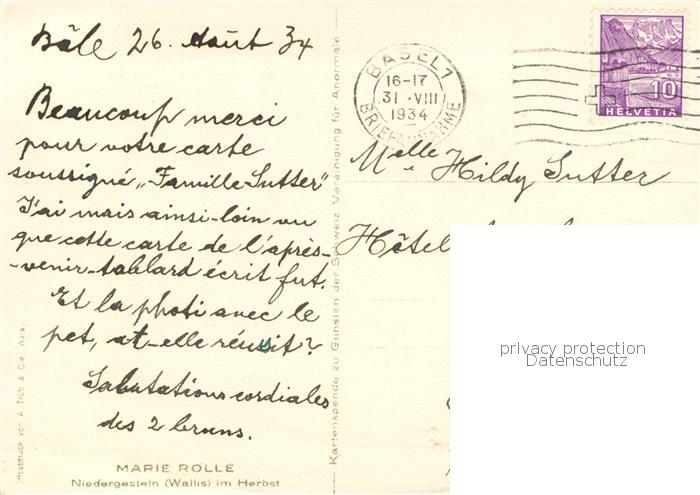 Bâle 26. Août 34
Beaucoup merci
pour votre carte
soussigné „Famille Sutter"
J'ai mais ainsi-loin vu
que cette carte de l'après-
-venir-tablard écrit fut.
Et la photi avec le
pet, at-elle réussit?
Salutations cordiales
des 2 bruns.
MARIE ROLLÉ
Niedergesteln (Wallis) im Herbst
Offsetdruck von A. Trüb & Cie. Aarau
Kartenspende zu Gunsten der Schweiz. Vereinigung für Anormale
BASEL 1
16-17
31.VIII
1934
BRIEFANNAHME
10
HELVETIA
Melle Hildy Sutter
Hôtel
privacy protection
Datenschutz